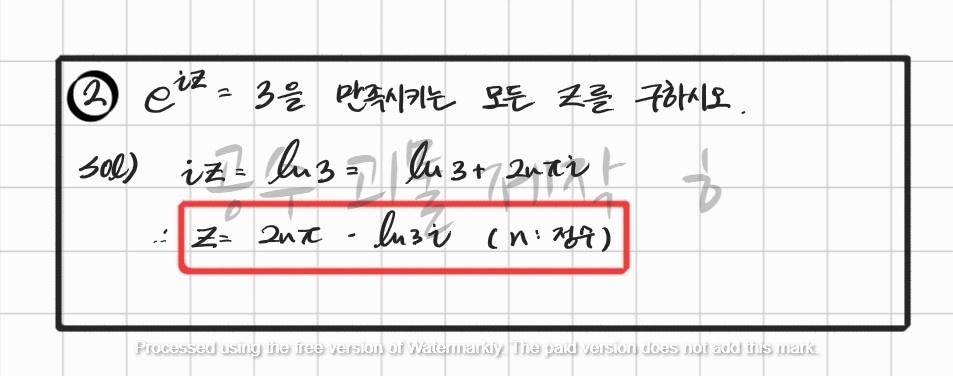 ② e^{iz} = 3을 만족시키는 모든 z를 구하시오.
sol) iz = ln 3 = ln 3 + 2nπi
∴ z = 2nπ - ln3i (n: 정수)
공수 괴물 제작 ㅎ
Processed using the free version of Watermarkly. The paid version does not add this mark.